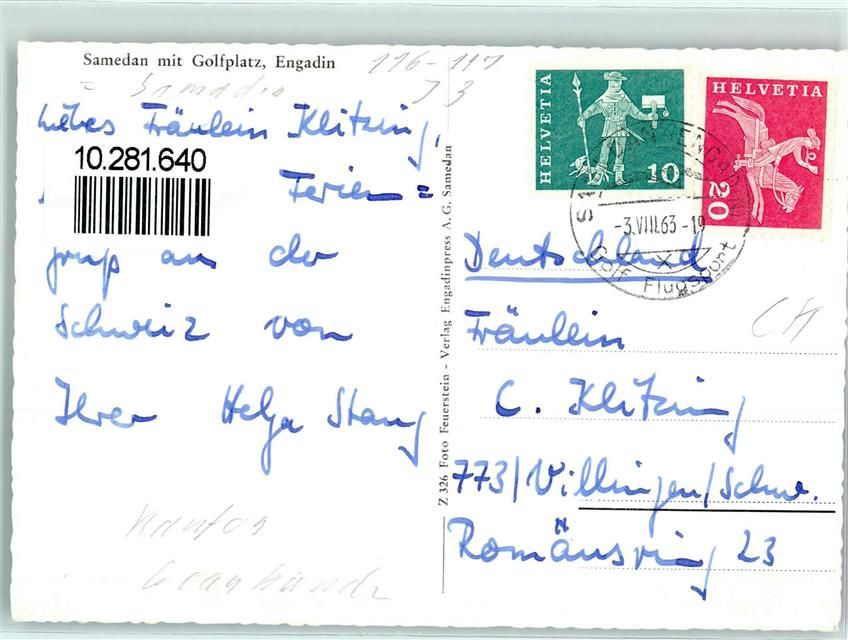 Samedan mit Golfplatz, Engadin
116-117
Liebes Fräulein Klitzing,
10.281.640
Ferien=
gruß aus der
Schweiz von
Ihrer Helga Stang
Kanton
Graubünden
Z 326 Foto Feuerstein - Verlag Engadinpress A. G. Samedan
HELVETIA
10
HELVETIA
20
-3.VIII.63-19
Golf Flugsport
Deutschland
Fräulein
C. Klitzing
773/Villingen/Schw.
Romäusring 23
CH